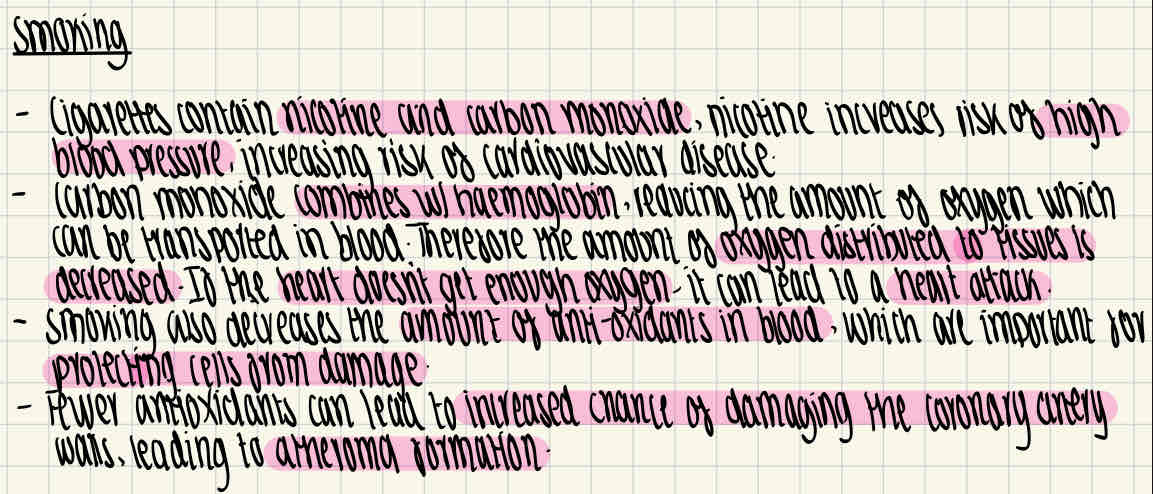 smoking
- Cigarettes contain nicotine and carbon monoxide, nicotine increases risk of high
blood pressure, increasing risk of cardiovascular disease.
- Carbon monoxide combines w/ haemoglobin, reducing the amount of oxygen which
can be transported in blood. Therefore the amount of oxygen distributed to tissues is
decreased. If the heart doesn't get enough oxygen, it can lead to a heart attack.
- smoking also decreases the amount of anti-oxidants in blood, which are important for
protecting cells from damage.
- Fewer antioxidants can lead to increased chance of damaging the coronary artery
walls, leading to atheroma formation.